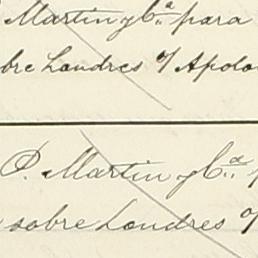 Martin y Cª para
bre Londres o/ Apolo
P. Martin y Cª p
sobre Londres o/